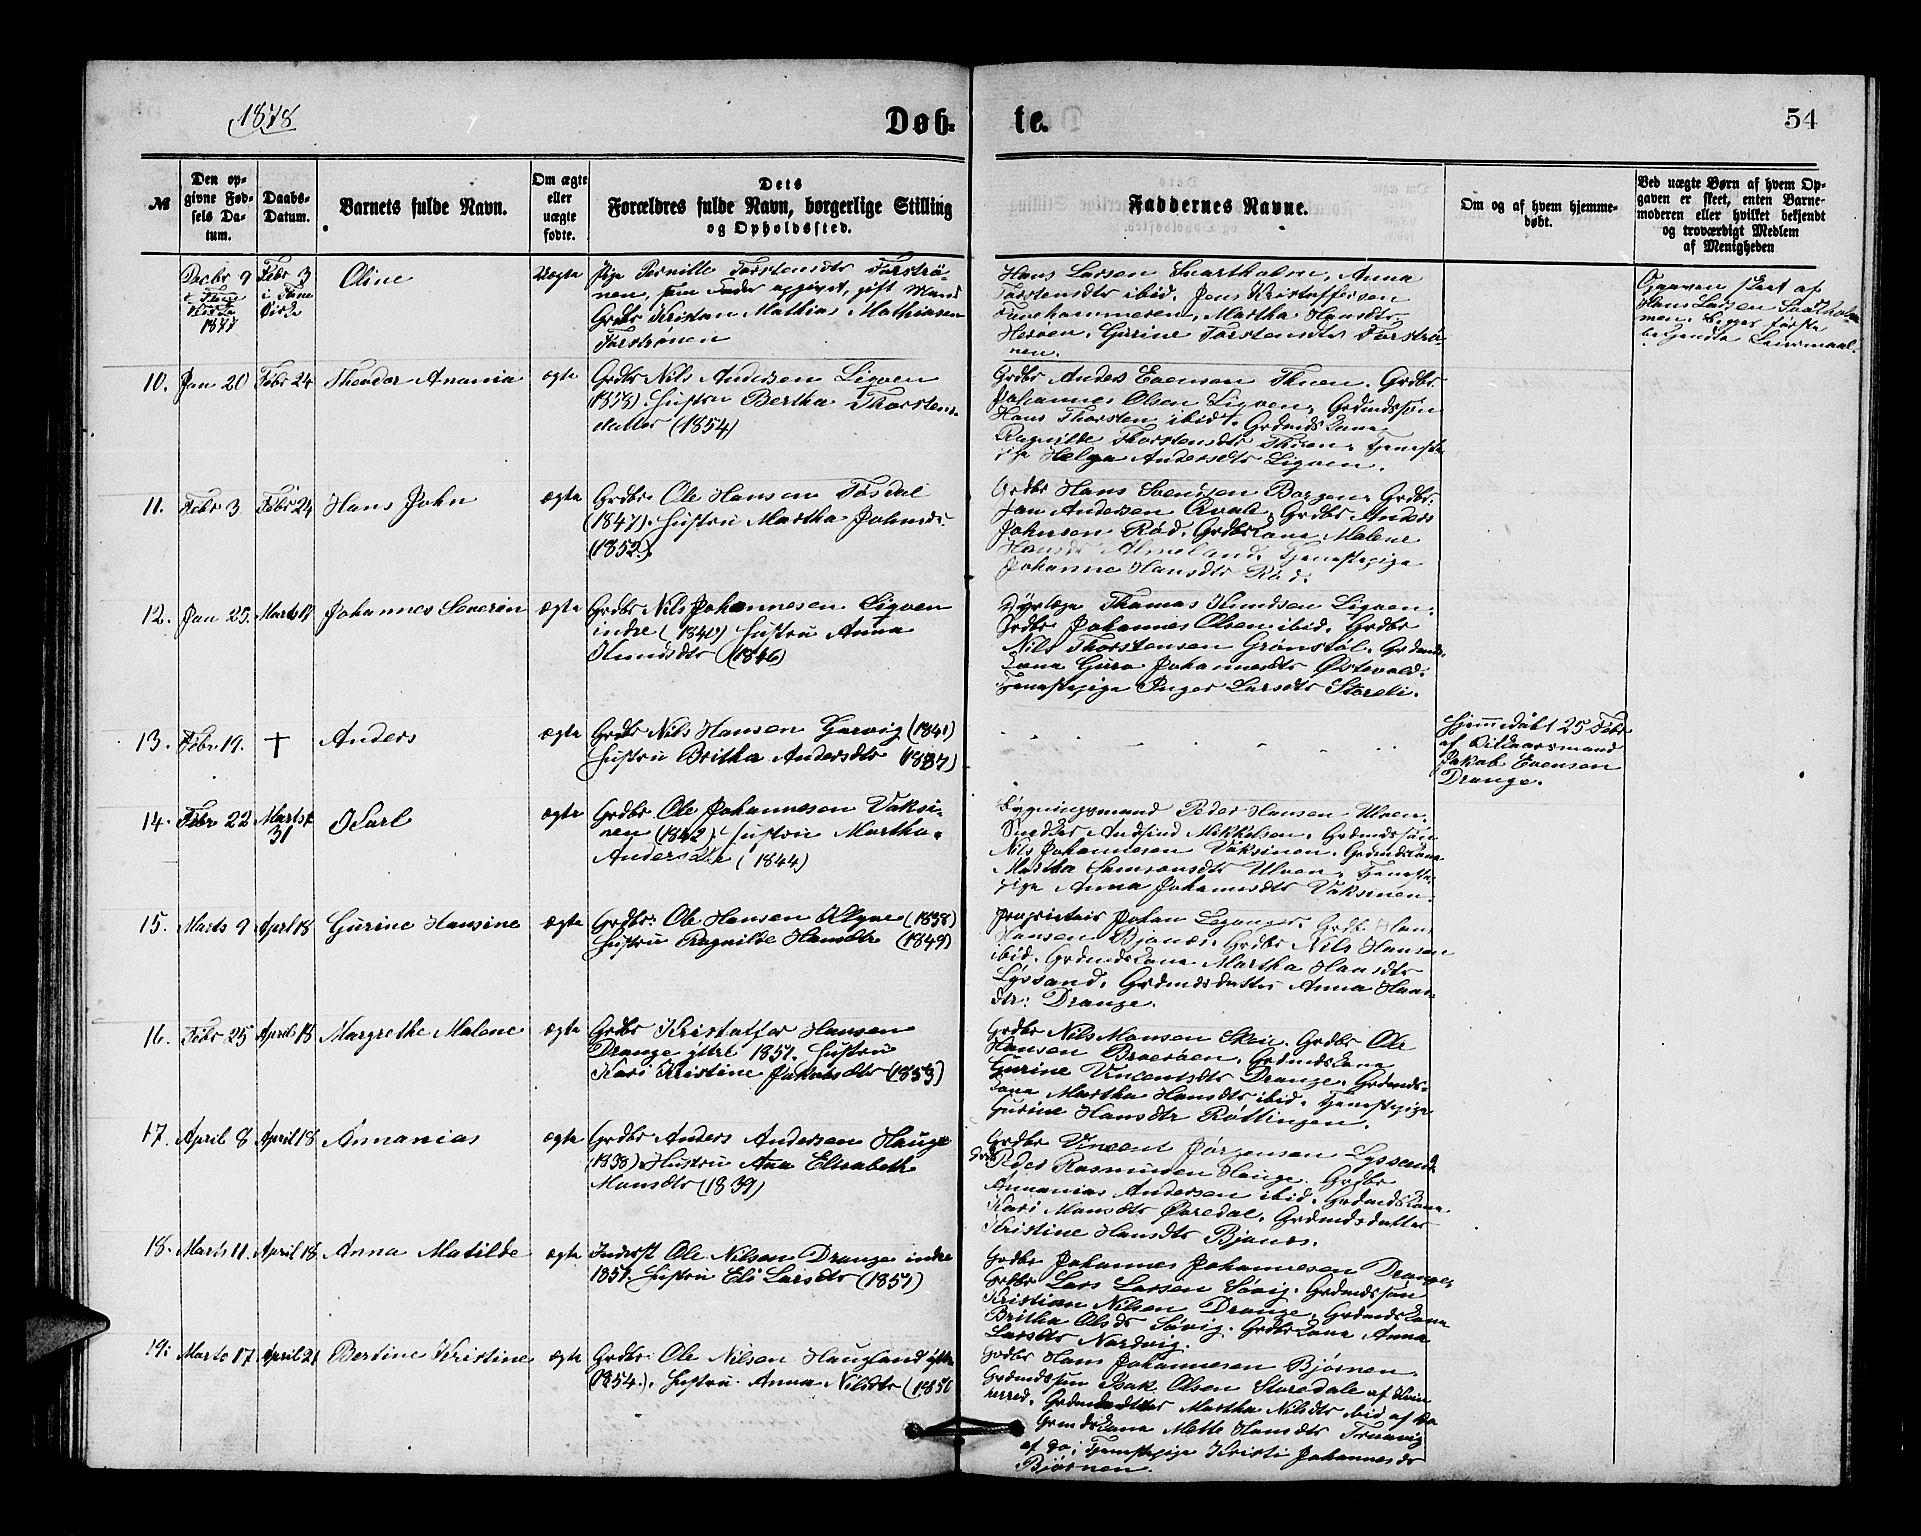 1878
Døb-
te.
54
№
Den op-
givne Fød-
sels Da-
tum.
Daabs-
Datum.
Barnets fulde Navn.
Om ægte
eller
uægte
fødte.
Dets
Forældres fulde Navn, borgerlige Stilling
og Opholdssted.
Faddernes Navne.
Om og af hvem hjemme-
døbt.
Ved uægte Børn af hvem Op-
gaven er skeet, enten Barne-
moderen eller hvilket bekjendt
og troværdigt Medlem
af Menigheden
Decbr 9
1877
Febr 3
i Fane
Kirke
Oline
Uægte
Pige Pernille Torstensdtr Forstrø-
nen, som Fader opgivet, gift Mand
Grdbr Kristian Mathias Mathiasen
Forstrønen
Hans Larsen Svartholm, Anna
Torstensdtr ibid. Jens Kristoffersen
Martha Hansdtr
Gurine Torstensdtr Forstrø-
nen.
Opgaven skeet af
Hans Larsen
Begges første
bekjendte Leiermaal.
10.
Jan 20
Febr 24
Theodor Anania
ægte
Grdbr Nils Andersen Ligven
(1858). Hustru Bertha Thorstens-
datter (1854)
Grdbr Anders Evensen Thuen. Grdbr.
Johannes Olsen Ligven, Grdmdssøn
Hans Thorsten ibid. Grdmdskone
Ragnilde Thorstensdtr Thuen, Tjeneste-
pige Helga Andersdtr Ligven.
11.
Febr 3
Febr 24
Hans John
ægte
Grdbr. Ole Hansen Tøsdal
(1847). Hustru Martha Johnsdr.
(1852).
Grdbr Hans Svendsen Borgen, Grdbr.
Jan Andersen Qvale, Grdbr Anders
Johnsen Rød. Grdbrkone Malene
Hansdr Almeland. Tjenestepige
Johanne Hansdtr Rød.
12.
Jan 25.
Marts 17
Johannes Severin
ægte
Grdbr Nils Johannesen Ligven
indre (1840) Hustru Anna
Knudsdtr (1846)
Thomas Knudsen Ligven.
Grdbr Johannes Olsen ibid. Grdbr
Nils Thorstensen Grønstøl. Grdmds-
kone Guro Johannesdtr Østevold.
Tjenestepige Inger Larsdtr Storeli.
13.
Febr 19.
†
Anders
ægte
Grdbr Nils Hansen Gjervig (1841)
Hustru Britha Andersdtr (1837)
Hjemmedøbt 25 Febr
af Vitnesmand
Jakob Evensen
Drange.
14.
Febr 22
Marts
31
Karl
ægte
Grdbr Ole Johannesen Vaksi-
nen (1842) Hustru Martha
Andersdtr (1844)
Bygningsmand Peder Hansen Ulven.
Snedker Andsind Mikkelsen. Grdmdssøn
Nils Johannesen Vaksinen. Grdmdskone
Martha Samsonsdtr Ulven, Tjeneste-
pige Anna Johannesdtr Vaksinen.
15.
Marts 9
April 18
Gurine Hansine
ægte
Grdbr. Ole Hansen Øigne (1838)
Hustru Ragnilde Hansdtr (1849)
Proprietair Johan Leganger. Grdbr Hans
Hansen Bjånes. Grdbr Nils Hansen
ibid. Grdmdskone Martha Hansdtr
Lysand. Grdmdsdatter Anna Hans-
dtr. Drange.
16.
Febr 25
April 18
Margrethe Malene
ægte
Grdbr Kristoffer Hansen
Drange ytre 1851. Hustru
Kari Kristine Jakobsdtr (1853)
Grdbr Nils Monsen Skeie. Grdbr Ole
Hansen Grdmdskone
Gurine Vincentsdtr Drange. Grdmds-
kone Martha Hansdtr ibid. Tjenestepige
Gurine Hansdtr Røttingen.
17.
April 8
April 18
Annanias
ægte
Grdbr Anders Andersen Hauge
(1838). Hustru Ana Elisabeth
Monsdtr (1839)
Grdbr Vincent Jørgensen Lyssand.
Peder Rasmussen Hauge. Grdbr
Annanias Andersen ibid. Grdmdskone
Kari Monsdtr Øvredal. Grdmdsdatter
Kristine Hansdtr Bjånes.
18.
Marts 11.
April 18
Anna Matilde
ægte
Inderst Ole Nilsen Drange indre
1851. Hustru Eli Larsdtr (1851)
Grdbr Johannes Johannesen Drange,
Grdbr Lars Larsen Søvig. Grdmdssøn
Kristian Nilsen Drange. Grdmdskone
Britha Olsdr Søvig. Grdbrkone Anna
Larsdtr Nordvig.
19.
Marts 17
April 21
Bertine Kristine
ægte
Grdbr. Ole Nilsen Haugland ytre
(1854). Hustru Anna Nilsdtr (1850
Grdbr Hans Johannesen Bjørnen.
Grdmdssøn Isak Olsen Storedale af Kvin-
herred. Grdmdsdatter Martha Nilsdtr ibid af do
Grmdskone Mette Hansdtr
af do; Tjenestepige Kristi Johannesdr
Bjørnen.